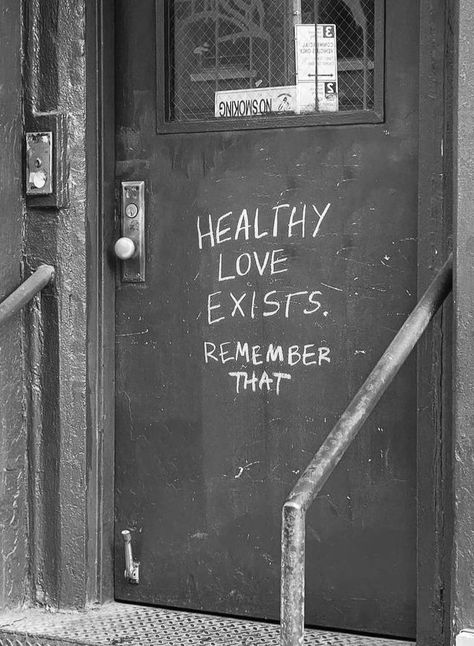 NO SMOKING
HEALTHY
LOVE
EXISTS.
REMEMBER
THAT